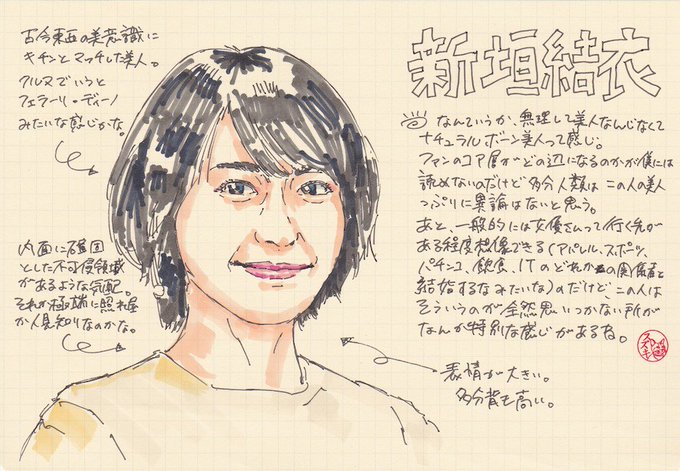 新垣結衣
古今東西の美意識に
キチンとマッチした美人。
クルマでいうと
フェラーリ・ディーノ
みたいな感じかな。
なんていうか、無理して美人なんじゃなくて
ナチュラルボーン美人って感じ。
ファンのコア層がどの辺になるのかが僕には
読めないのだけど多分人類はこの人の美人
っぷりに異論はないと思う。
あと、一般的には女優さんって行く先が
ある程度想像できる(アパレル、スポーツ、
パチンコ、飲食、ITのどれかの関係者と
結婚するなみたいな)のだけど、この人は
そういうのが全然思いつかない所が
なんか特別な感じがあるね。
内面に確固
とした不可侵領域
があるような気配。
それが極端に照れ屋
か人見知りなのかな。
表情が大きい。
多分背も高い。